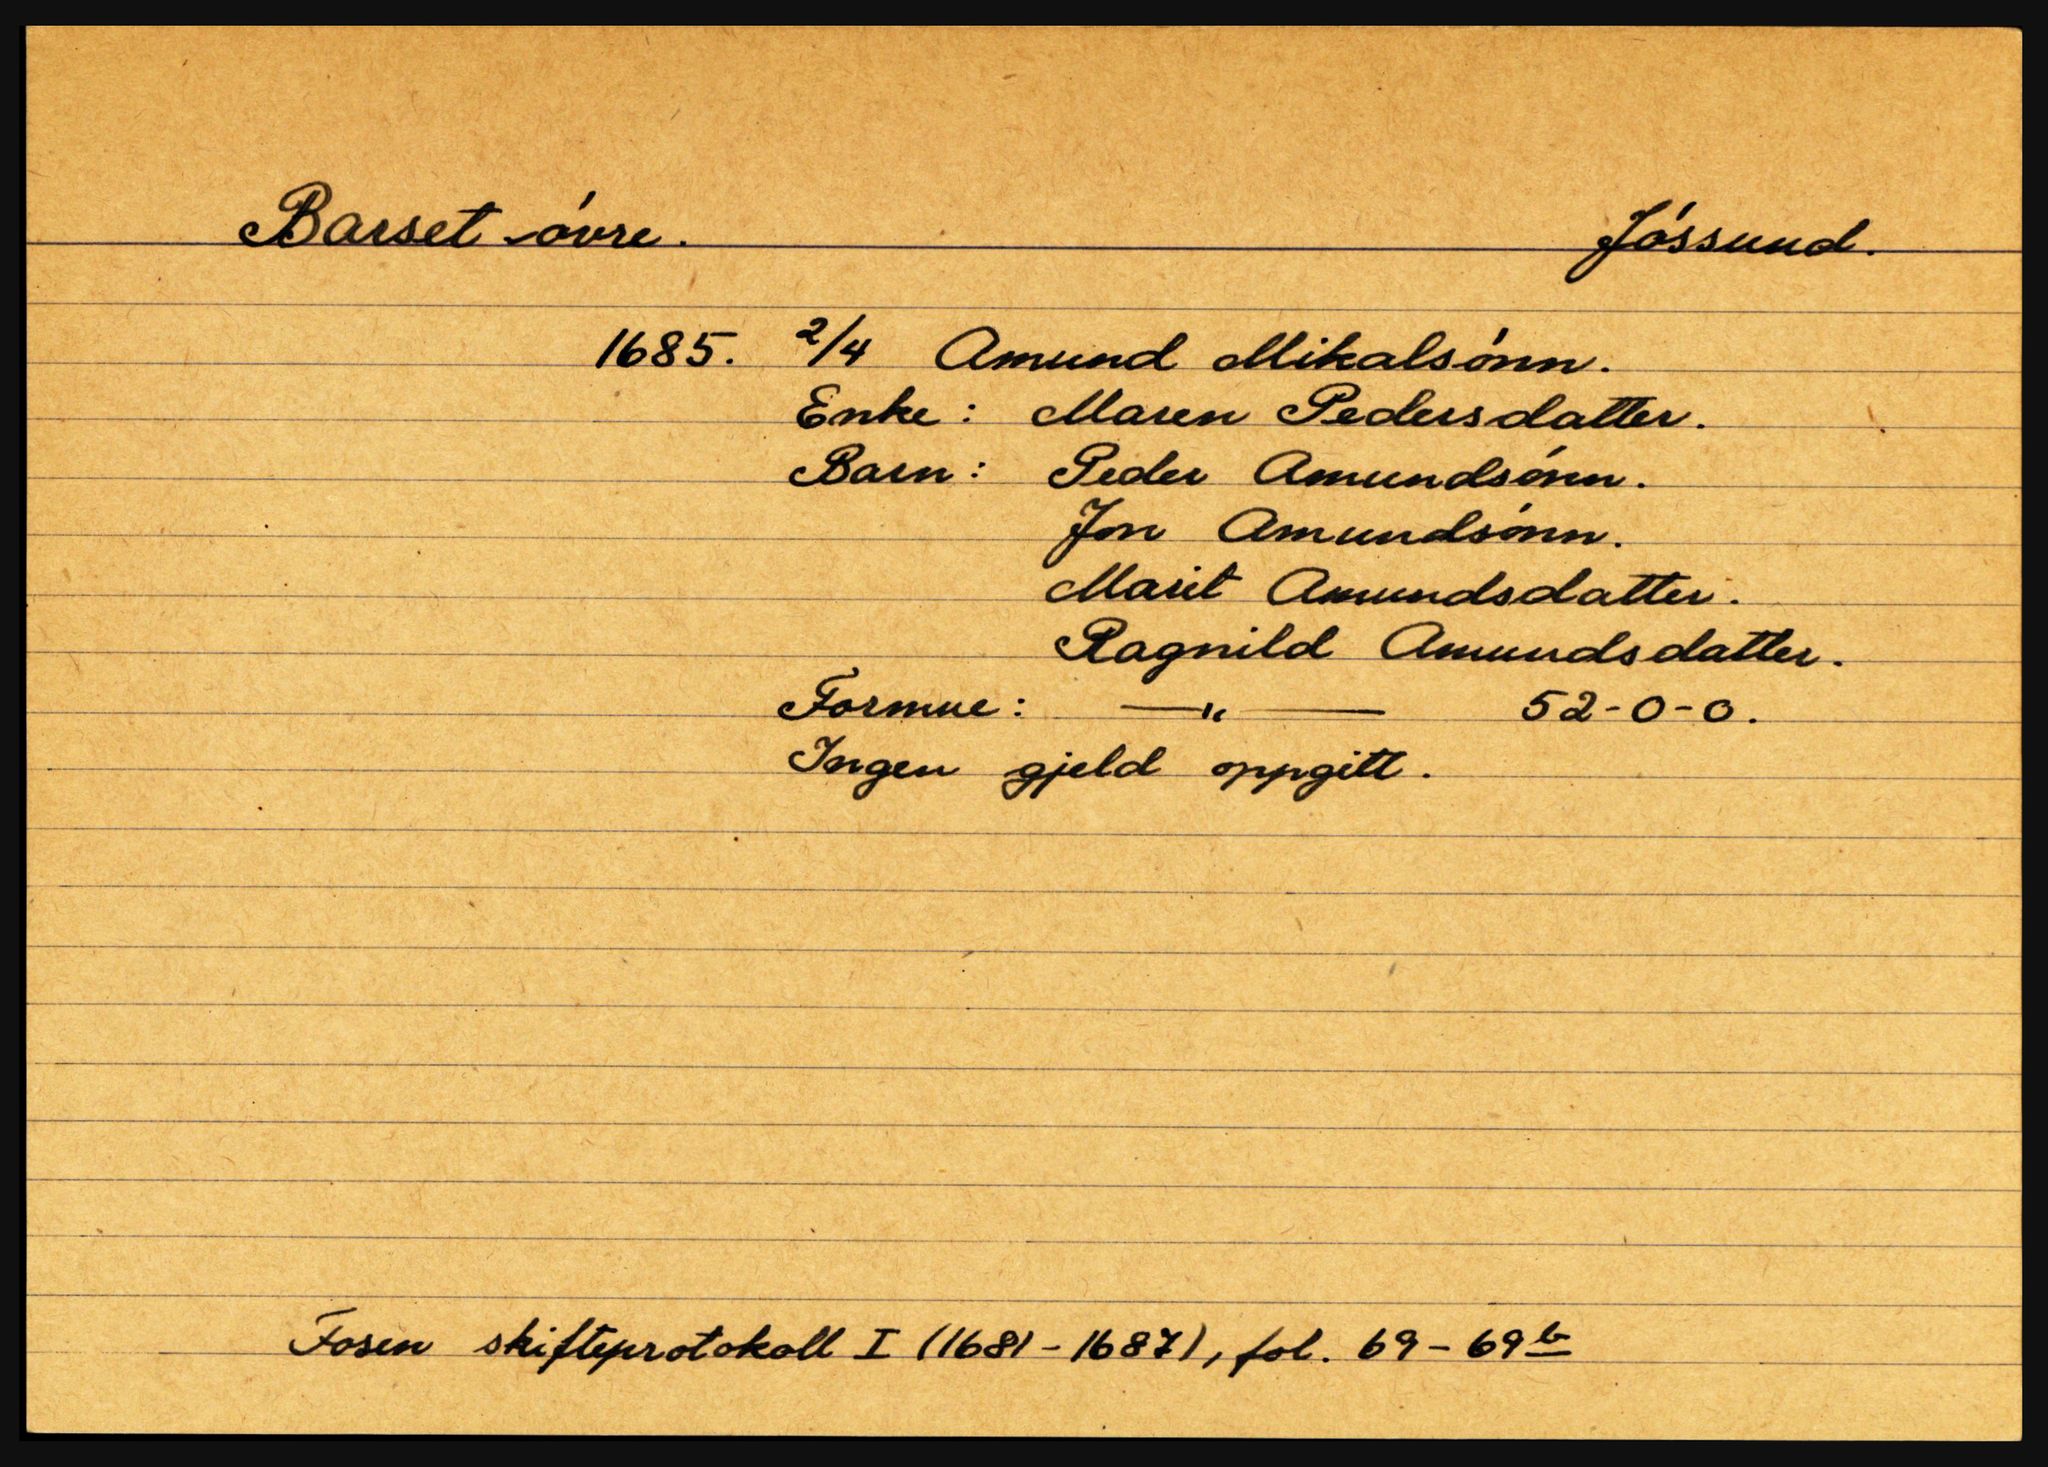 Barset -óvre. Jóssund.
1685. 2/4 Amund Mikalsónn.
Enke: Maren Pedersdatter.
Barn: Peder Amundsónn.
Jon Amundsónn.
Marit Amundsdatter.
Ragnild Amundsdatter.
Formue: —"— 52-0-0.
Ingen gjeld oppgitt.
Fosen skifteprotokoll I (1681-1687), fol. 69-69b